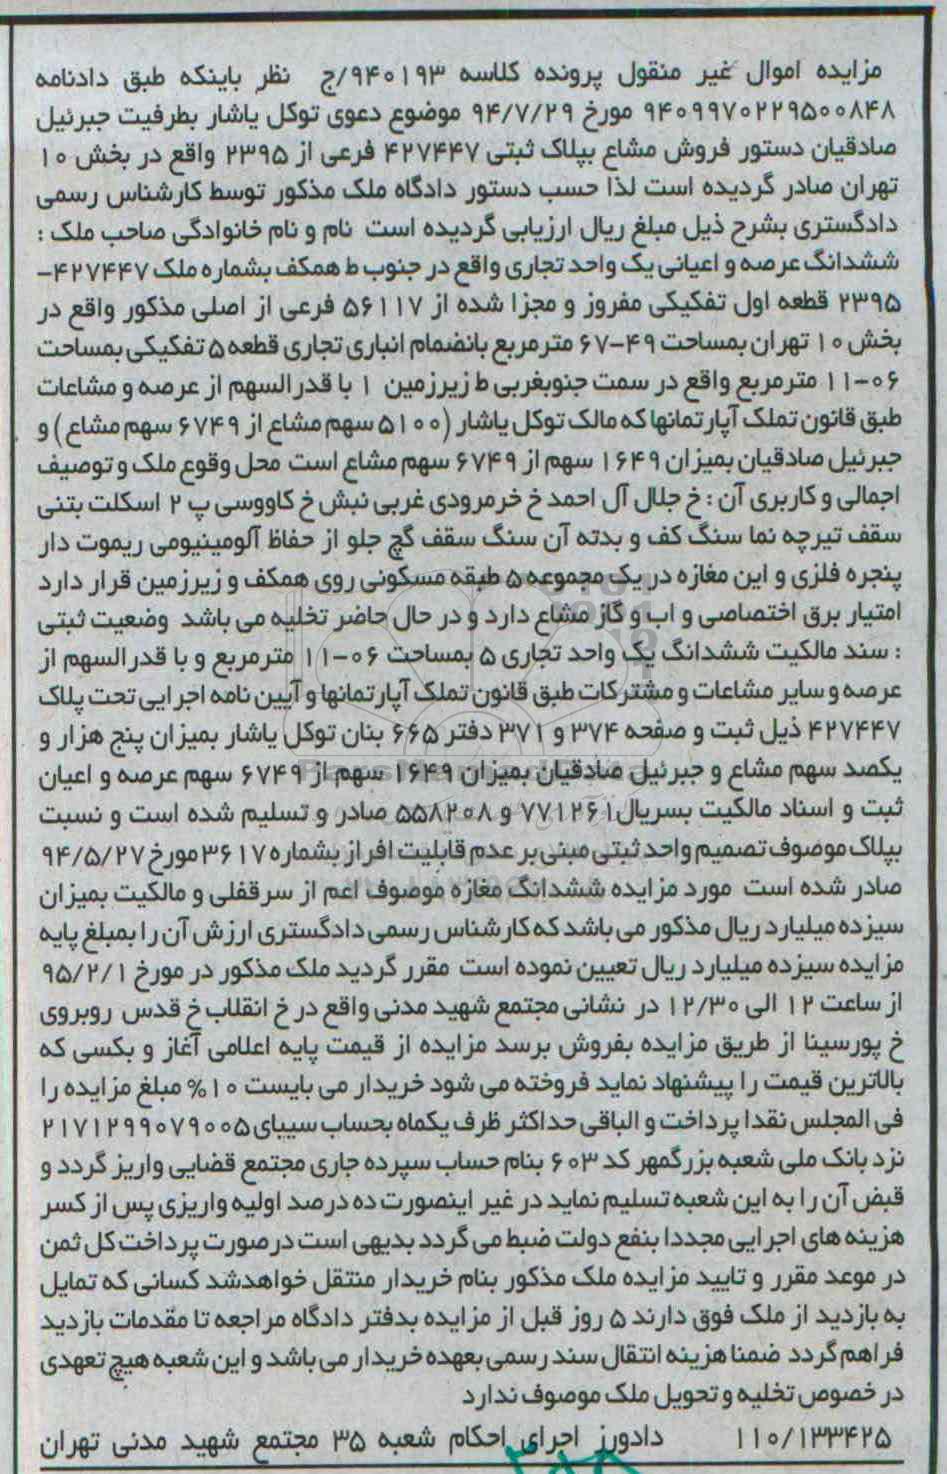 مزایده اموال غیر منقول پرونده کلاسه ۹۴۰۱۹۳/ج نظر باینکه طبق دادنامه
۹۴۰۹۹۷۰۲۲۹۵۰۰۸۴۸ مورخ ۹۴/۷/۲۹ موضوع دعوی توکل یاشار بطرفیت جبرئیل
صادقیان دستور فروش مشاع بپلاک ثبتی ۴۲۷۴۴۷ فرعی از ۲۳۹۵ واقع در بخش ۱۰
تهران صادر گردیده است لذا حسب دستور دادگاه ملک مذکور توسط کارشناس رسمی
دادگستری بشرح ذیل مبلغ ریال ارزیابی گردیده است نام و نام خانوادگی صاحب ملک :
ششدانگ عرصه و اعیانی یک واحد تجاری واقع در جنوب ط همکف بشماره ملک ۴۲۷۴۴۷-
۲۳۹۵ قطعه اول تفکیکی مفروز و مجزا شده از ۵۶۱۱۷ فرعی از اصلی مذکور واقع در
بخش ۱۰ تهران بمساحت ۴۹-۶۷ مترمربع بانضمام انباری تجاری قطعه ۵ تفکیکی بمساحت
۰۶-۱۱ مترمربع واقع در سمت جنوبغربی ط زیرزمین ۱ با قدرالسهم از عرصه و مشاعات
طبق قانون تملک آپارتمانها که مالک توکل یاشار (۵۱۰۰ سهم مشاع از ۶۷۴۹ سهم مشاع) و
جبرئیل صادقیان بمیزان ۱۶۴۹ سهم از ۶۷۴۹ سهم مشاع است محل وقوع ملک و توصیف
اجمالی و کاربری آن : خ جلال آل احمد خ خرمرودی غربی نبش خ کاووسی پ ۲ اسکلت بتنی
سقف تیرچه نما سنگ کف و بدنه آن سنگ سقف گچ جلو از حفاظ آلومینیومی ریموت دار
پنجره فلزی و این مغازه در یک مجموعه ۵ طبقه مسکونی روی همکف و زیرزمین قرار دارد
امتیاز برق اختصاصی و اب و گاز مشاع دارد و در حال حاضر تخلیه می باشد وضعیت ثبتی
: سند مالکیت ششدانگ یک واحد تجاری ۵ بمساحت ۰۶-۱۱ مترمربع و با قدرالسهم از
عرصه و سایر مشاعات و مشترکات طبق قانون تملک آپارتمانها و آیین نامه اجرایی تحت پلاک
۴۲۷۴۴۷ ذیل ثبت و صفحه ۳۷۴ و ۳۷۱ دفتر ۶۶۵ بنان توکل یاشار بمیزان پنج هزار و
یکصد سهم مشاع و جبرئیل صادقیان بمیزان ۱۶۴۹ سهم از ۶۷۴۹ سهم عرصه و اعیان
ثبت و اسناد مالکیت بسریال ۷۷۱۲۶۱ و ۵۵۸۲۰۸ صادر و تسلیم شده است و نسبت
بپلاک موصوف تصمیم واحد ثبتی مبنی بر عدم قابلیت افراز بشماره ۳۶۱۷ مورخ ۹۴/۵/۲۷
صادر شده است مورد مزایده ششدانگ مغازه موصوف اعم از سرقفلی و مالکیت بمیزان
سیزده میلیارد ریال مذکور می باشد که کارشناس رسمی دادگستری ارزش آن را بمبلغ پایه
مزایده سیزده میلیارد ریال تعیین نموده است مقرر گردید ملک مذکور در مورخ ۹۵/۲/۱
از ساعت ۱۲ الی ۱۲/۳۰ در نشانی مجتمع شهید مدنی واقع در خ انقلاب خ قدس روبروی
خ پورسینا از طریق مزایده بفروش برسد مزایده از قیمت پایه اعلامی آغاز و بکسی که
بالاترین قیمت را پیشنهاد نماید فروخته می شود خریدار می بایست ۱۰% مبلغ مزایده را
فی المجلس نقدا پرداخت و الباقی حداکثر ظرف یکماه بحساب سیبای ۲۱۷۱۲۹۹۰۷۹۰۰۵
نزد بانک ملی شعبه بزرگمهر کد ۶۰۳ بنام حساب سپرده جاری مجتمع قضایی واریز گردد و
قبض آن را به این شعبه تسلیم نماید در غیر اینصورت ده درصد اولیه واریزی پس از کسر
هزینه های اجرایی مجددا بنفع دولت ضبط می گردد بدیهی است درصورت پرداخت کل ثمن
در موعد مقرر و تایید مزایده ملک مذکور بنام خریدار منتقل خواهدشد کسانی که تمایل
به بازدید از ملک فوق دارند ۵ روز قبل از مزایده بدفتر دادگاه مراجعه تا مقدمات بازدید
فراهم گردد ضمنا هزینه انتقال سند رسمی بعهده خریدار می باشد و این شعبه هیچ تعهدی
در خصوص تخلیه و تحویل ملک موصوف ندارد
۱۱۰/۱۳۳۴۲۵ دادورز اجرای احکام شعبه ۳۵ مجتمع شهید مدنی تهران